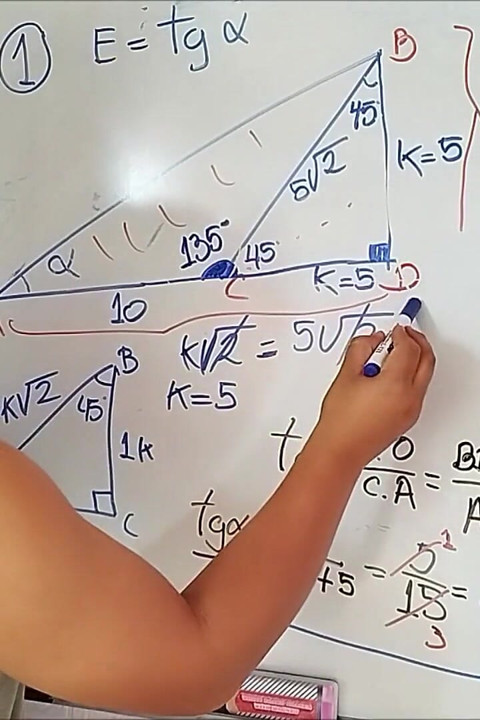 1 E = tg α
B
45
5√2
K=5
135°
45
α
K=5 D
C
10
K√2 = 5√2
K=5
B
K√2
45
1K
C
C.A
=
tgα
+5 = 5/15 =
1
3